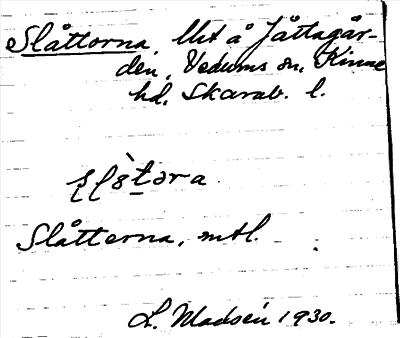 Slåttorna, Urt å Jättagår-
den, Vedums sn, Kinne
hd, Skarab. l.
slò̀təra
Slåtterna, mtl.
L. Madsén 1930.